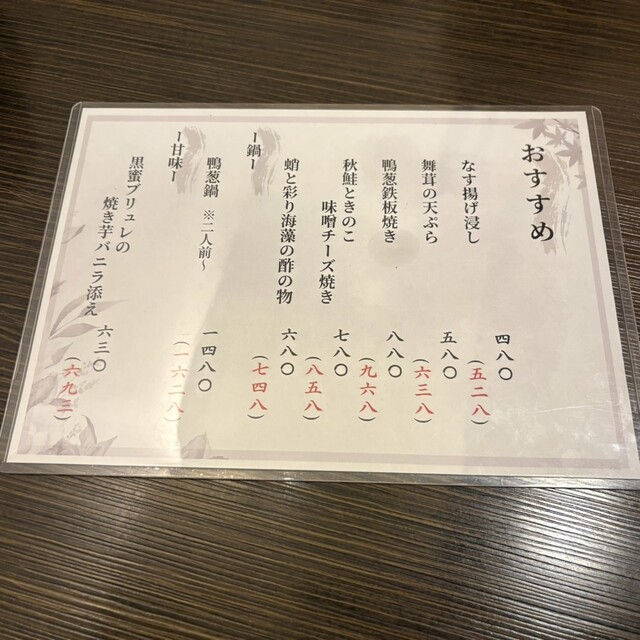 おすすめ
なす揚げ浸し
四八〇
(五二八)
舞茸の天ぷら
五八〇
(六三八)
鴨葱鉄板焼き
八八〇
(九六八)
秋鮭ときのこ
味噌チーズ焼き
七八〇
(八五八)
蛸と彩り海藻の酢の物
六八〇
(七四八)
ー鍋ー
鴨葱鍋 ※二人前~
一四八〇
(一六二八)
ー甘味ー
黒蜜ブリュレの
焼き芋バニラ添え
六三〇
(六九三)